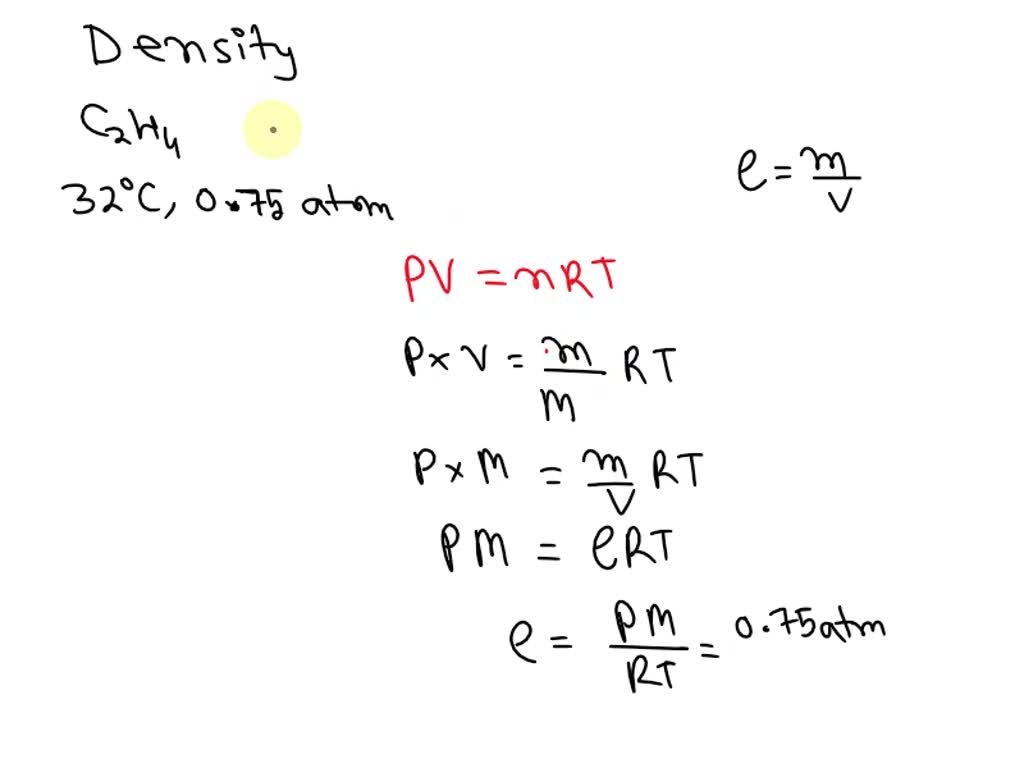 Density
C₂H₄
32°C, 0.75 atom
ρ = m/V
PV = nRT
P × V = m/M RT
P × M = m/V RT
PM = ρRT
ρ = PM/RT = 0.75 atm